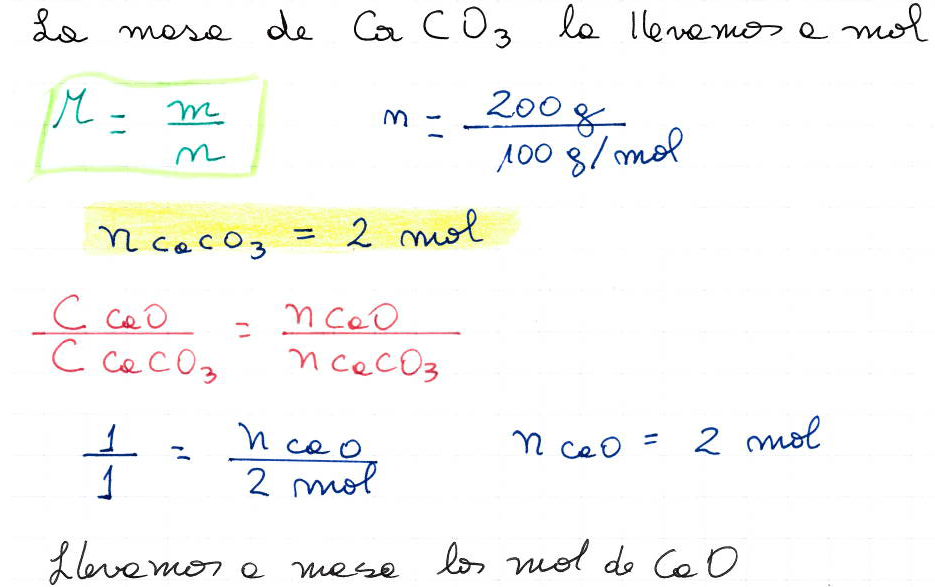 La masa de CaCO3 la llevamos a mol
M = m/n    n = 200 g / 100 g/mol
n CaCO3 = 2 mol
C CaO / C CaCO3 = n CaO / n CaCO3
1/1 = n CaO / 2 mol    n CaO = 2 mol
Llevamos a masa los mol de CaO